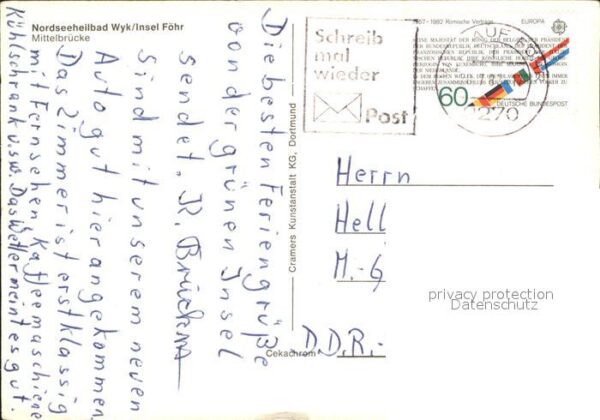 Nordseeheilbad Wyk/Insel Föhr
Mittelbrücke
Die besten Feriengrüße
von der grünen Insel
sendet. R. Brückn
Sind mit unserem neuen
Auto gut hier angekommen
Das Zimmer ist erstklassig
mit Fernsehen Kaffeemaschiene
Kühlschrank u.s.w. Das Wetter meint es gut.
Cramers Kunstanstalt KG, Dortmund
Cekachrom
Schreib
mal
wieder
Post
1957-1982 Römische Verträge
EUROPA
60
DEUTSCHE BUNDESPOST
2270
Herrn
Hell
M.-G
D.D.R.-
privacy protection
Datenschutz